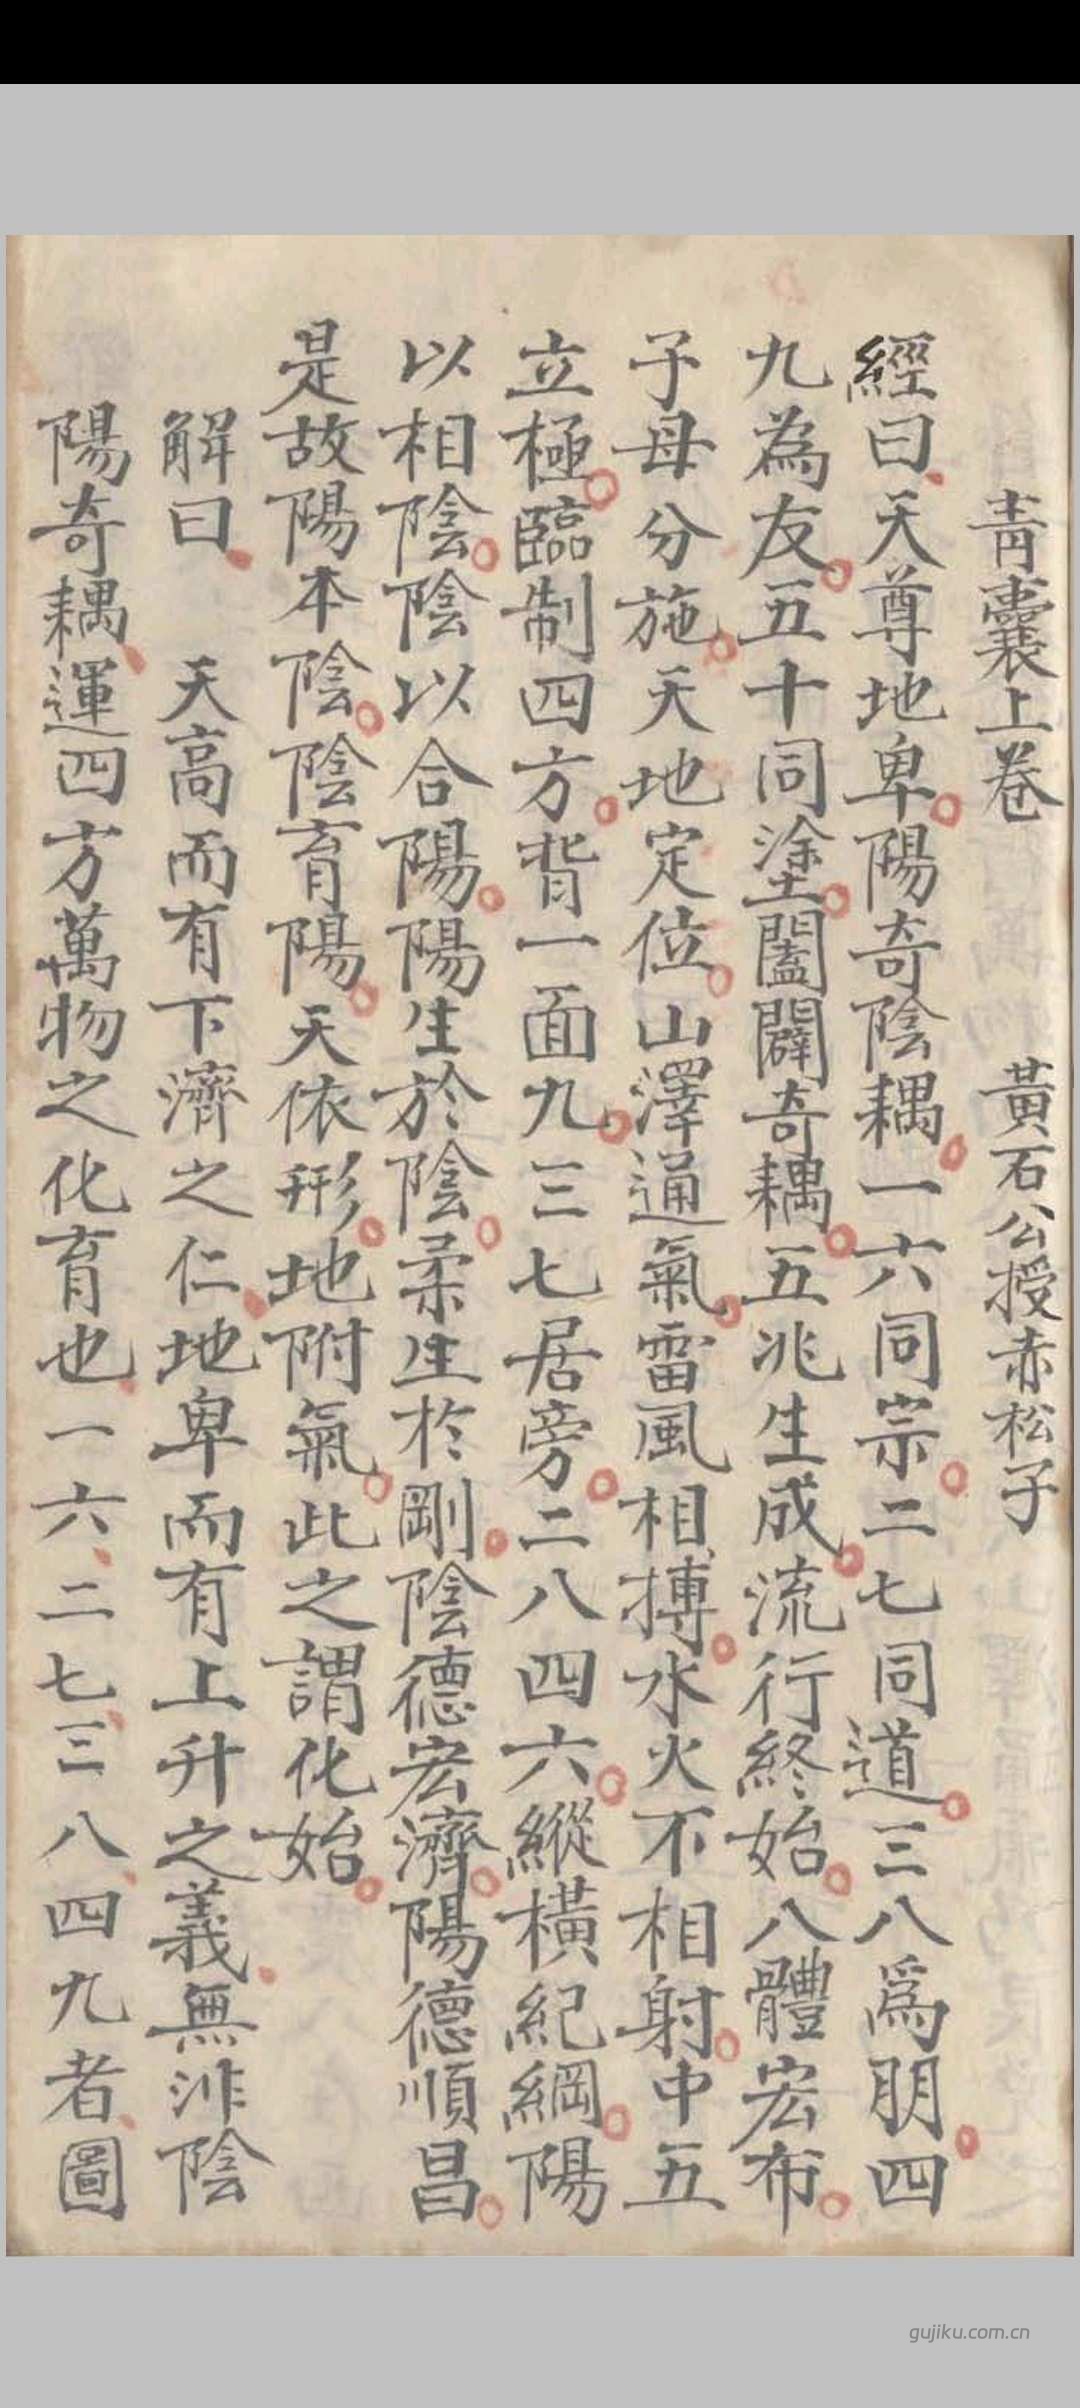 青囊上卷 黃石公授赤松子
經曰天尊地卑陽奇陰耦一六同宗二七同道三八爲朋四
九為友五十同塗闔闢奇耦五兆生成流行終始八體宏布
子母分施天地定位山澤通氣雷風相搏水火不相射中五
立極臨制四方背一面九三七居旁二八四六縱橫紀綱陽
以相陰陰以合陽陽生於陰柔生於剛陰德宏濟陽德順昌
是故陽本陰陰育陽天依形地附氣此之謂化始
解曰 天高而有下濟之仁地卑而有上升之義無非陰
陽奇耦運四方萬物之化育也一六二七三八四九者圖
gujiku.com.cn